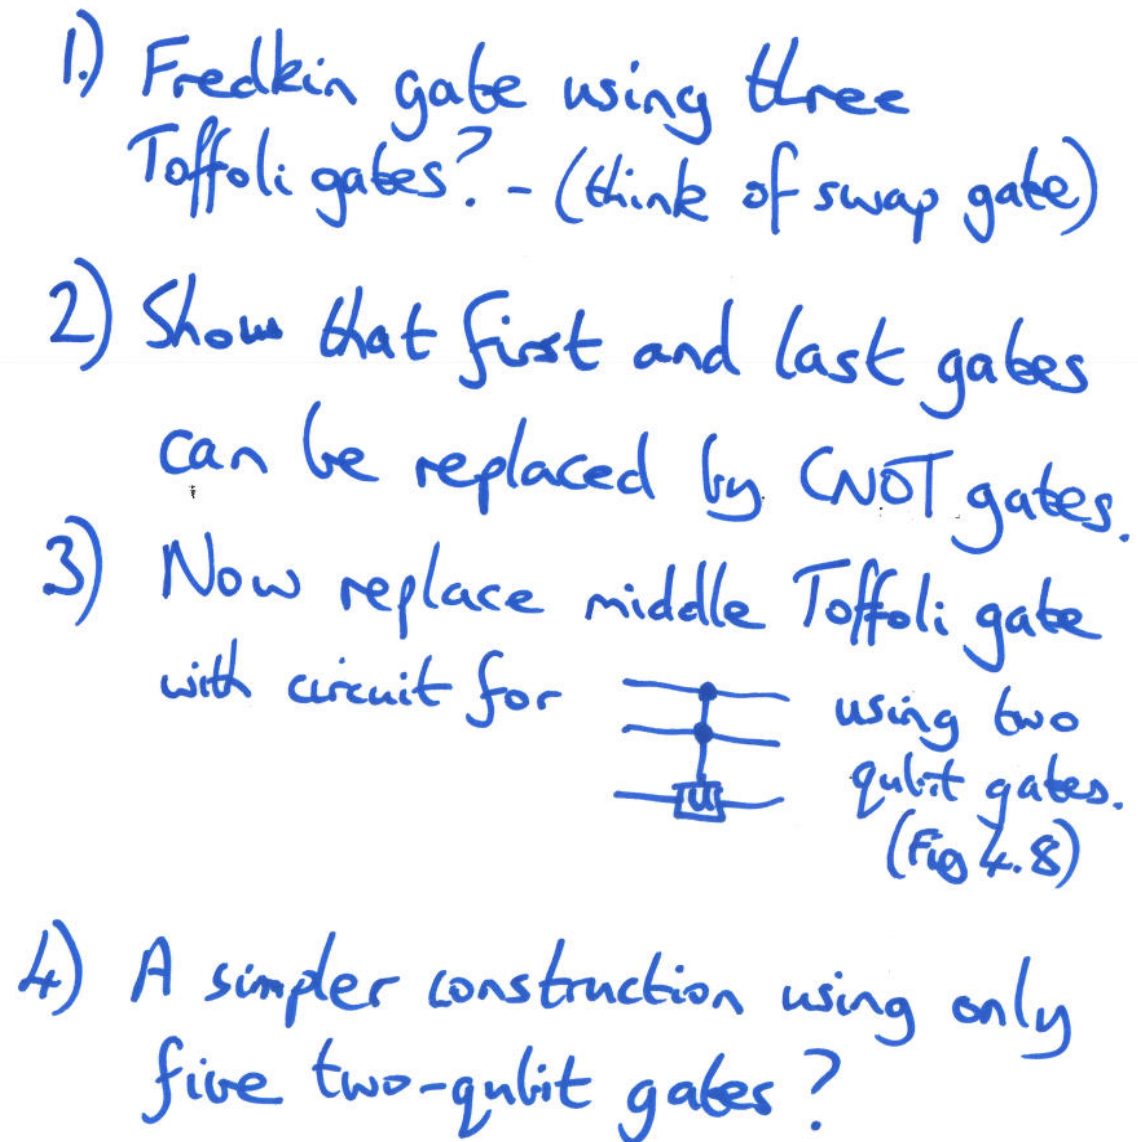 1.) Fredkin gate using three
Toffoli gates? - (think of swap gate)
2) Show that first and last gates
can be replaced by CNOT gates.
3) Now replace middle Toffoli gate
with circuit for U using two
qubit gates.
(Fig 4.8)
4) A simpler construction using only
five two-qubit gates?